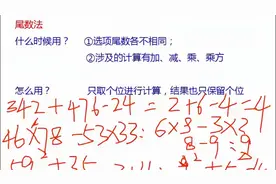 尾数法
什么时候用？ ①选项尾数各不相同；
②涉及的计算有加、减、乘、乘方
怎么用？ 只取个位进行计算，结果也只保留个位
342+476-24=2+6-4=4
46×78-53×33: 6×8-3×3
8-9=9